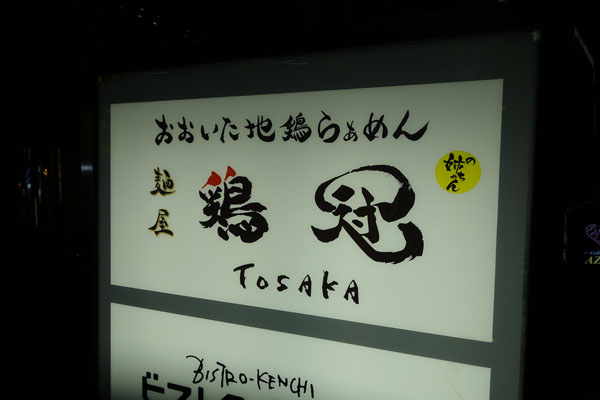 おおいた地鶏らぁめん
麺屋
鶏冠
のんちゃん
TOSAKA
BISTRO-KENCHI
ビスト